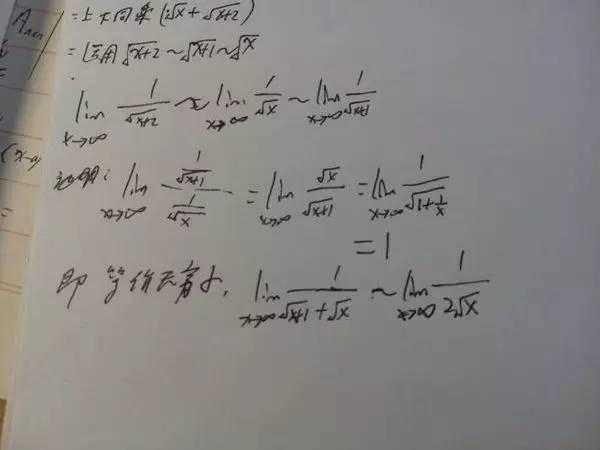 A
=上下同乘(√x+√x+2)
=(运用√x+2~√x+1~√x
lim x→∞ 1/√x+2 ~ lim x→∞ 1/√x ~ lim x→∞ 1/√x+1
证明: lim x→∞ (1/√x+1)/(1/√x) = lim x→∞ √x/√x+1 = lim x→∞ 1/√1+1/x
=1
即 等价无穷小, lim x→∞ 1/√x+1+√x ~ lim x→∞ 1/2√x